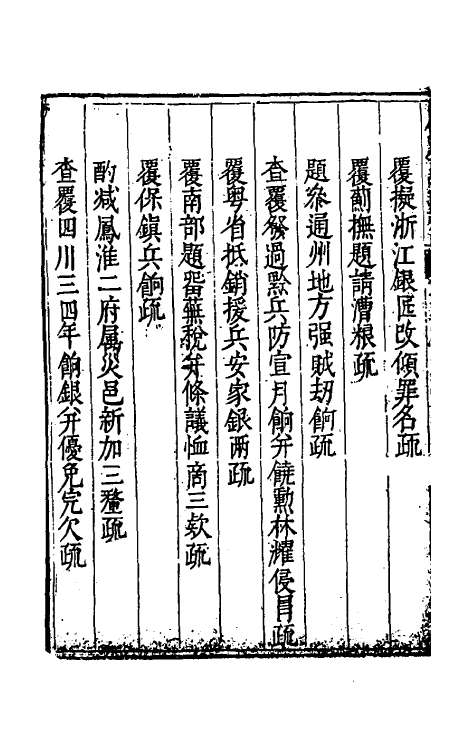 覆擬浙江銀匠改傾罪名疏
覆薊撫題請漕粮疏
題叅通州地方强賊刼餉疏
查覆發過黔兵防宣月餉并饒勲林耀侵冐疏
覆粤省抵銷援兵安家銀兩疏
覆南部題留蕪稅并條議恤商三欵疏
覆保鎮兵餉疏
酌减鳳淮二府屬災邑新加三釐疏
查覆四川三四年餉銀并優免完欠疏